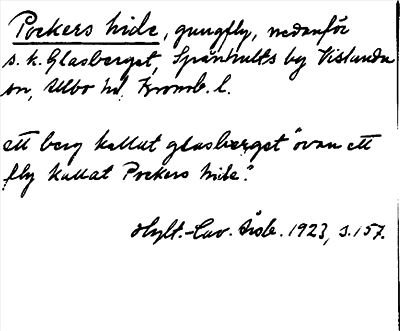 Pockers hide, gungfly, nedanför
s.k. Glasberget, Spånhults by Vislanda
sn, Allbo hd, Kronob. l.
ett berg kallat glasberget "ovan ett
fly kallat Pockers hide".
Hylt.-Cav. Årsb. 1923, s. 157.